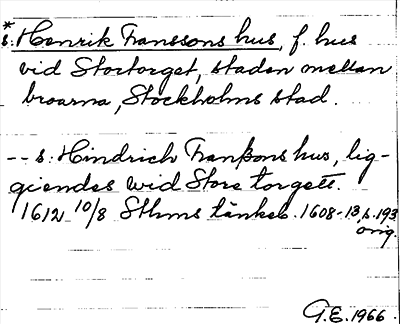 *
s: Henrik Franssons hus, f. hus
vid Stortorget, staden mellan
broarna, Stockholms stad.
-- s: Hindrich Franßons hus, lig-
giendes wid Stora torgett.
1612 10/8 Sthms tänkeb. 1608-13, s. 193
orig.
G.E. 1966.